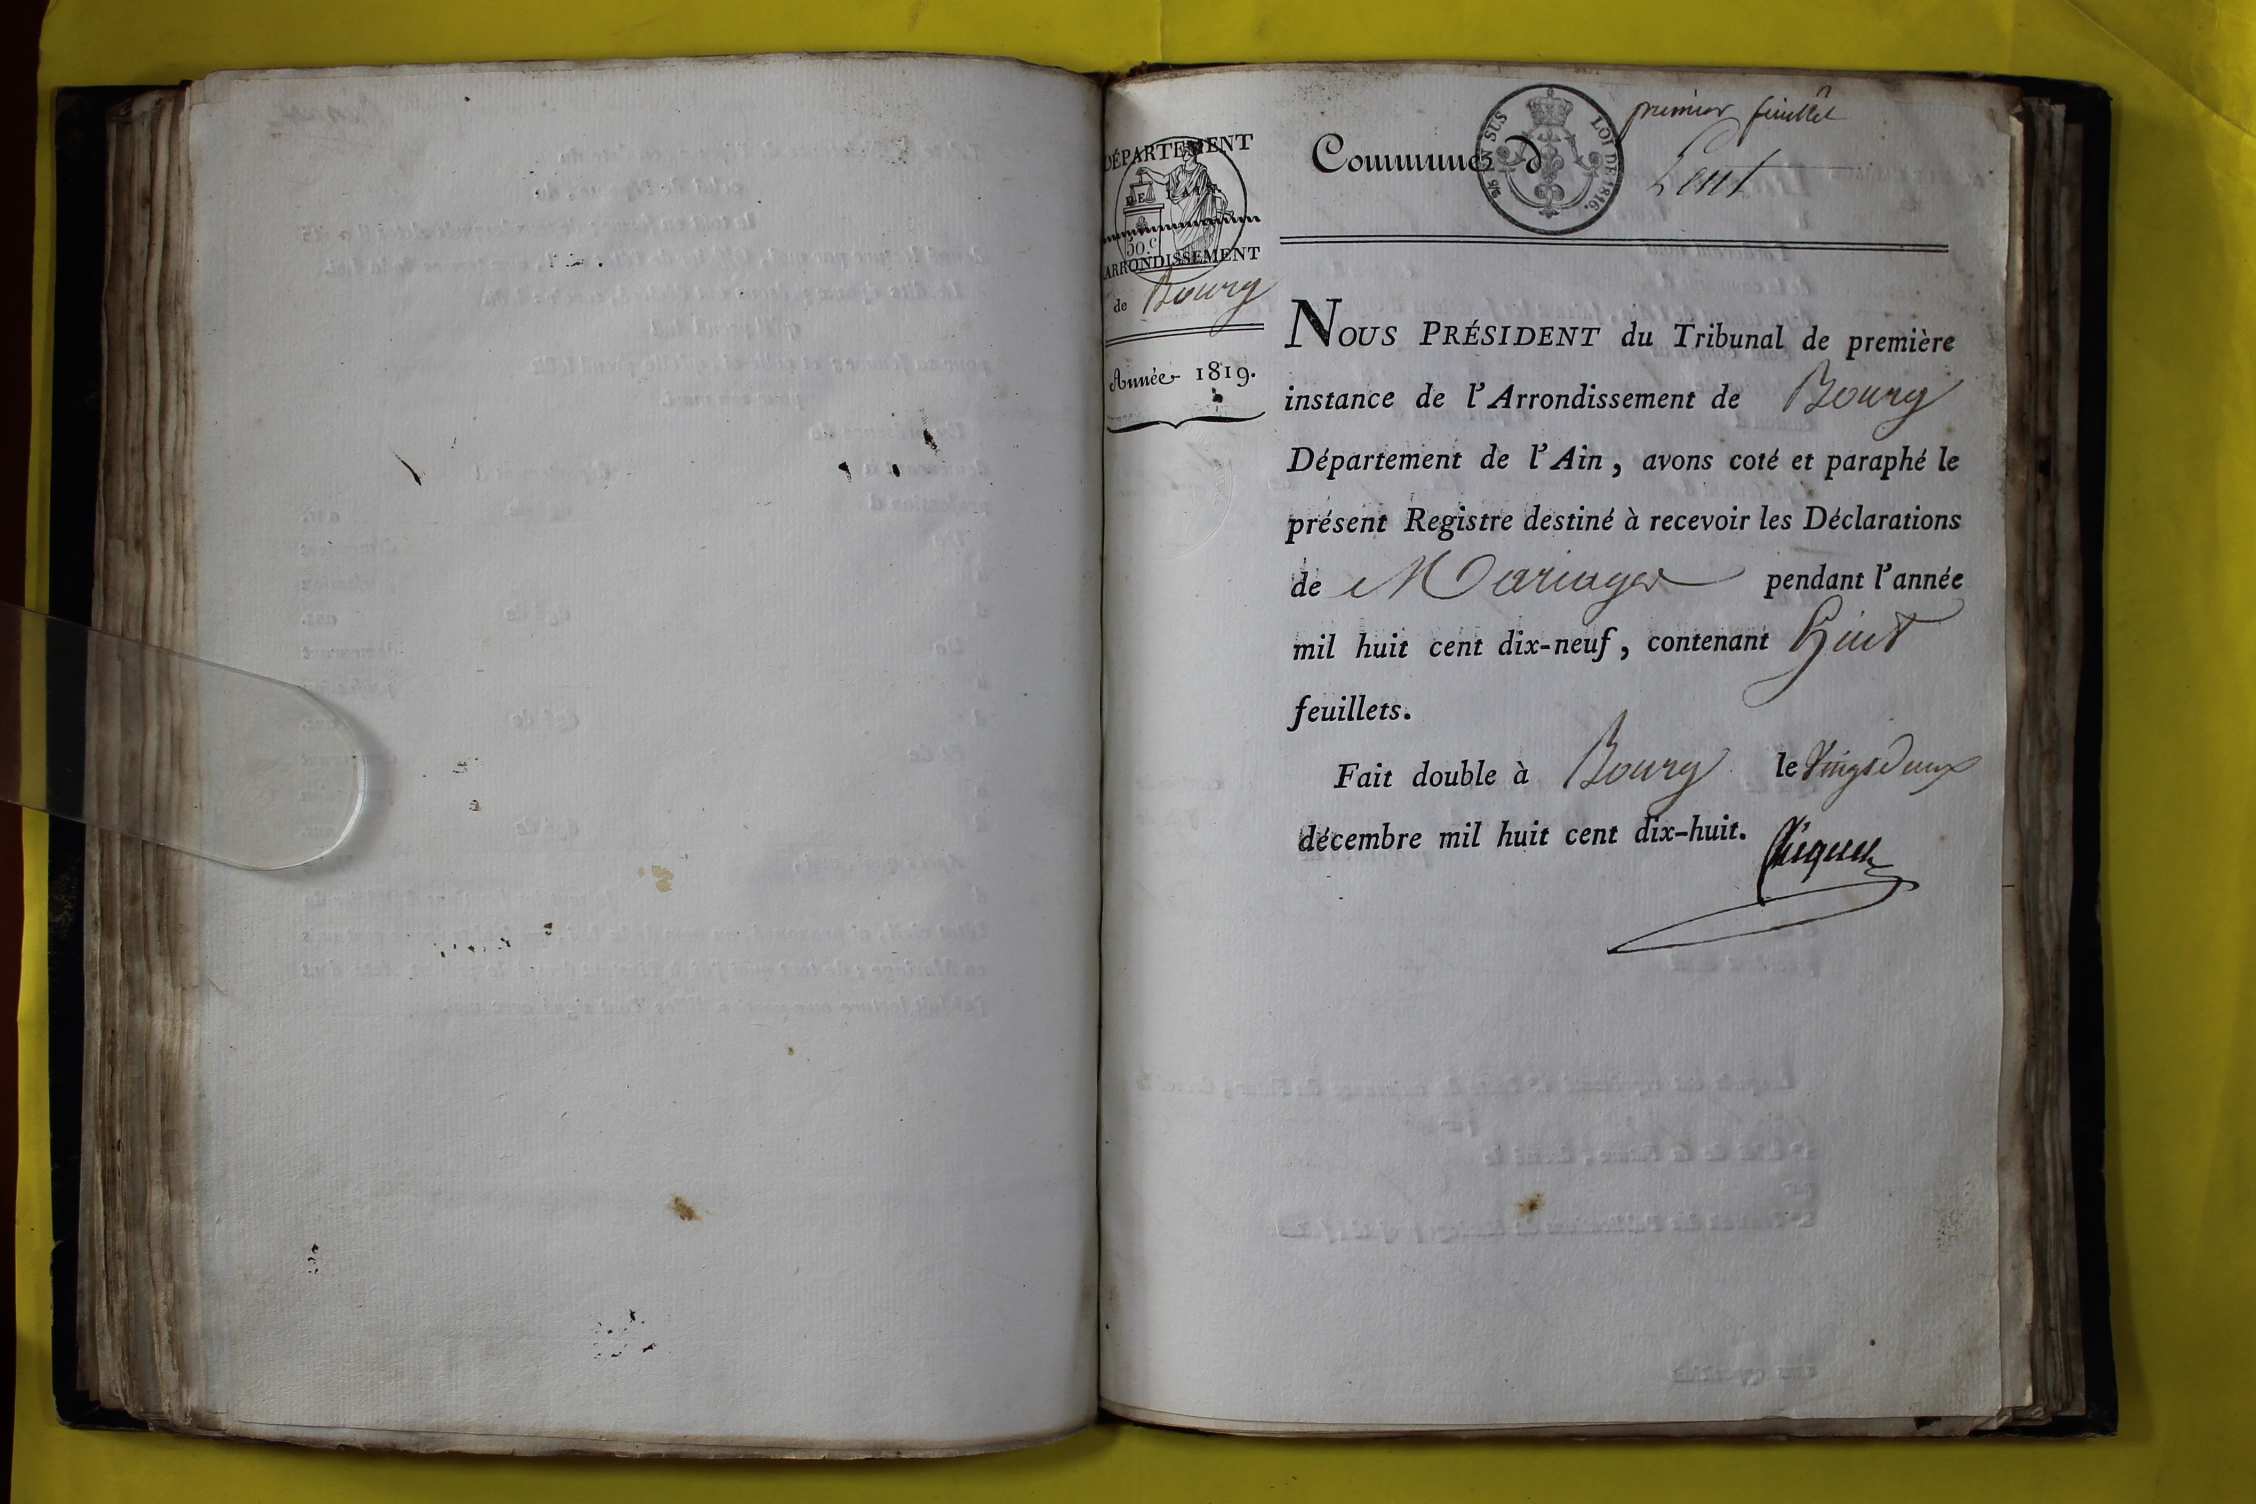 premier feuillet
DÉPARTEMENT
DE L'AIN
50 c.
ARRONDISSEMENT
de Bourg
Année 1819.
Commune d Lent
EN SUS LOI DE 1816.
NOUS PRÉSIDENT du Tribunal de première
instance de l'Arrondissement de Bourg
Département de l'Ain, avons coté et paraphé le
présent Registre destiné à recevoir les Déclarations
de Mariages pendant l'année
mil huit cent dix-neuf, contenant huit
feuillets.
Fait double à Bourg le Vingt deux
décembre mil huit cent dix-huit.